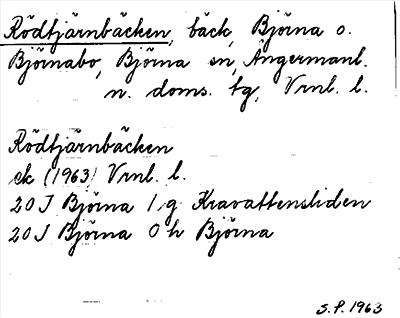 Rödtjärnbäcken, bäck, Björna o.
Björnabo, Björna sn, Ångermanl.
n. doms. tg, Vrnl. l.
Rödtjärnbäcken
ek (1963) Vrnl. l.
20 J Björna 1 g Kravattensliden
20 J Björna 0 h Björna
S.P. 1963